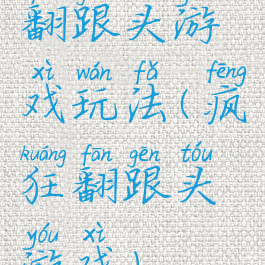 翻跟头游
xì wán fǎ fēng
戏玩法(疯
kuáng fān gēn tóu
狂翻跟头
yóu xì
游戏)